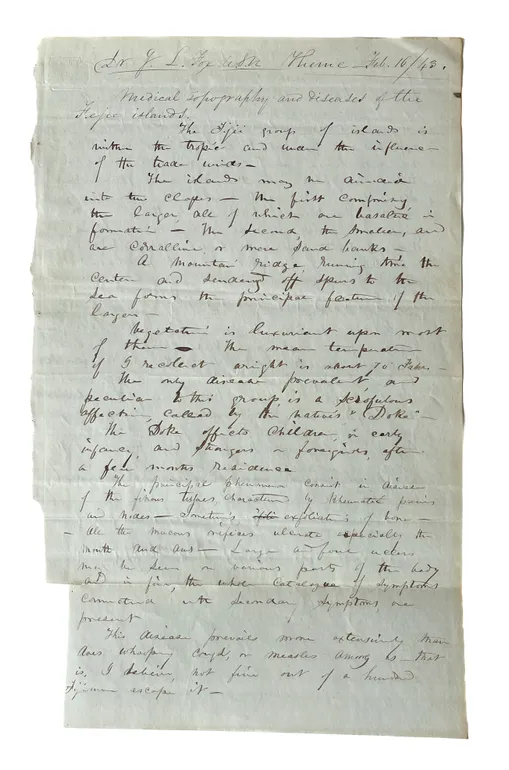 Dr J. L. Fox USN Feb. 16/43.
Medical Topography and diseases of the
Fejee islands.
The Fijii group of islands is
within the tropic and under the influence
of the trade winds —
The islands may be divided
into two classes — the first comprising
the larger, all of which are basaltic in
formation — the second, the smaller, and
are coralline or mere sand banks —
A mountain ridge running thro the
center and sending off spurs to the
sea forms the principal feature of the
larger —
Vegetation is luxuriant upon most
of them — The mean temperature
if I recollect aright is about 70 Fahr. —
The only disease prevalent and
peculiar to this group is a scrofulous
affection, called by the natives "Doke" —
The Doke affects children, in early
infancy, and strangers or foreigners, after
a few months residence
The principal phenomena consist in disease
of the fibrous types, characterized by rheumatic pains
and nodes — sometimes exfoliations of bone —
all the mucous orifices ulcerate especially the
mouth and anus — Large and foul ulcers
may be seen on various parts of the body
and in fine, the whole catalogue of symptoms
connected with secondary symptoms, are
present
This disease prevails more extensively than
does whooping cough, or measles among us — that
is, I believe, not five out of a hundred
Fijimen escape it —